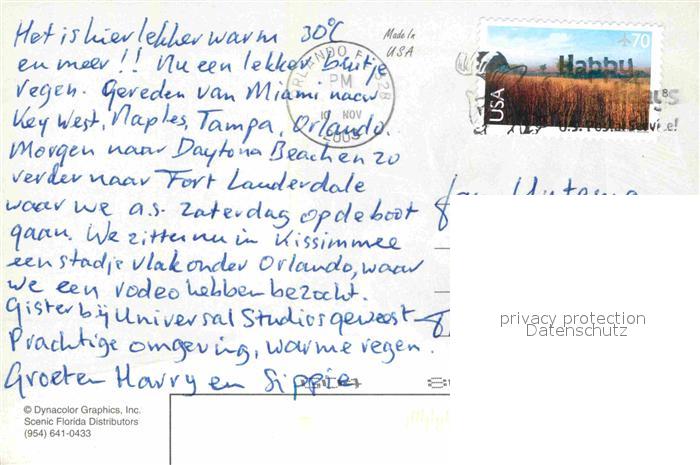 Het is hier lekker warm 30°C
en meer!! Nu een lekker buitje
regen. Gereden van Miami naar
Key West, Naples, Tampa, Orlando.
Morgen naar Daytona Beach en zo
verder naar Fort Lauderdale
waar we a.s. zaterdag op de boot
gaan. We zitten nu in Kissimmee
een stadje vlak onder Orlando, waar
we een rodeo hebben bezocht.
Gister bij Universal Studios geweest
Prachtige omgeving, warme regen.
Groeten Harry en Sippie
© Dynacolor Graphics, Inc.
Scenic Florida Distributors
(954) 641-0433
Made In
USA
ORLANDO FL 328
PM
10 NOV
USA
70
Happy
U.S. Postal Service!
privacy protection
Datenschutz